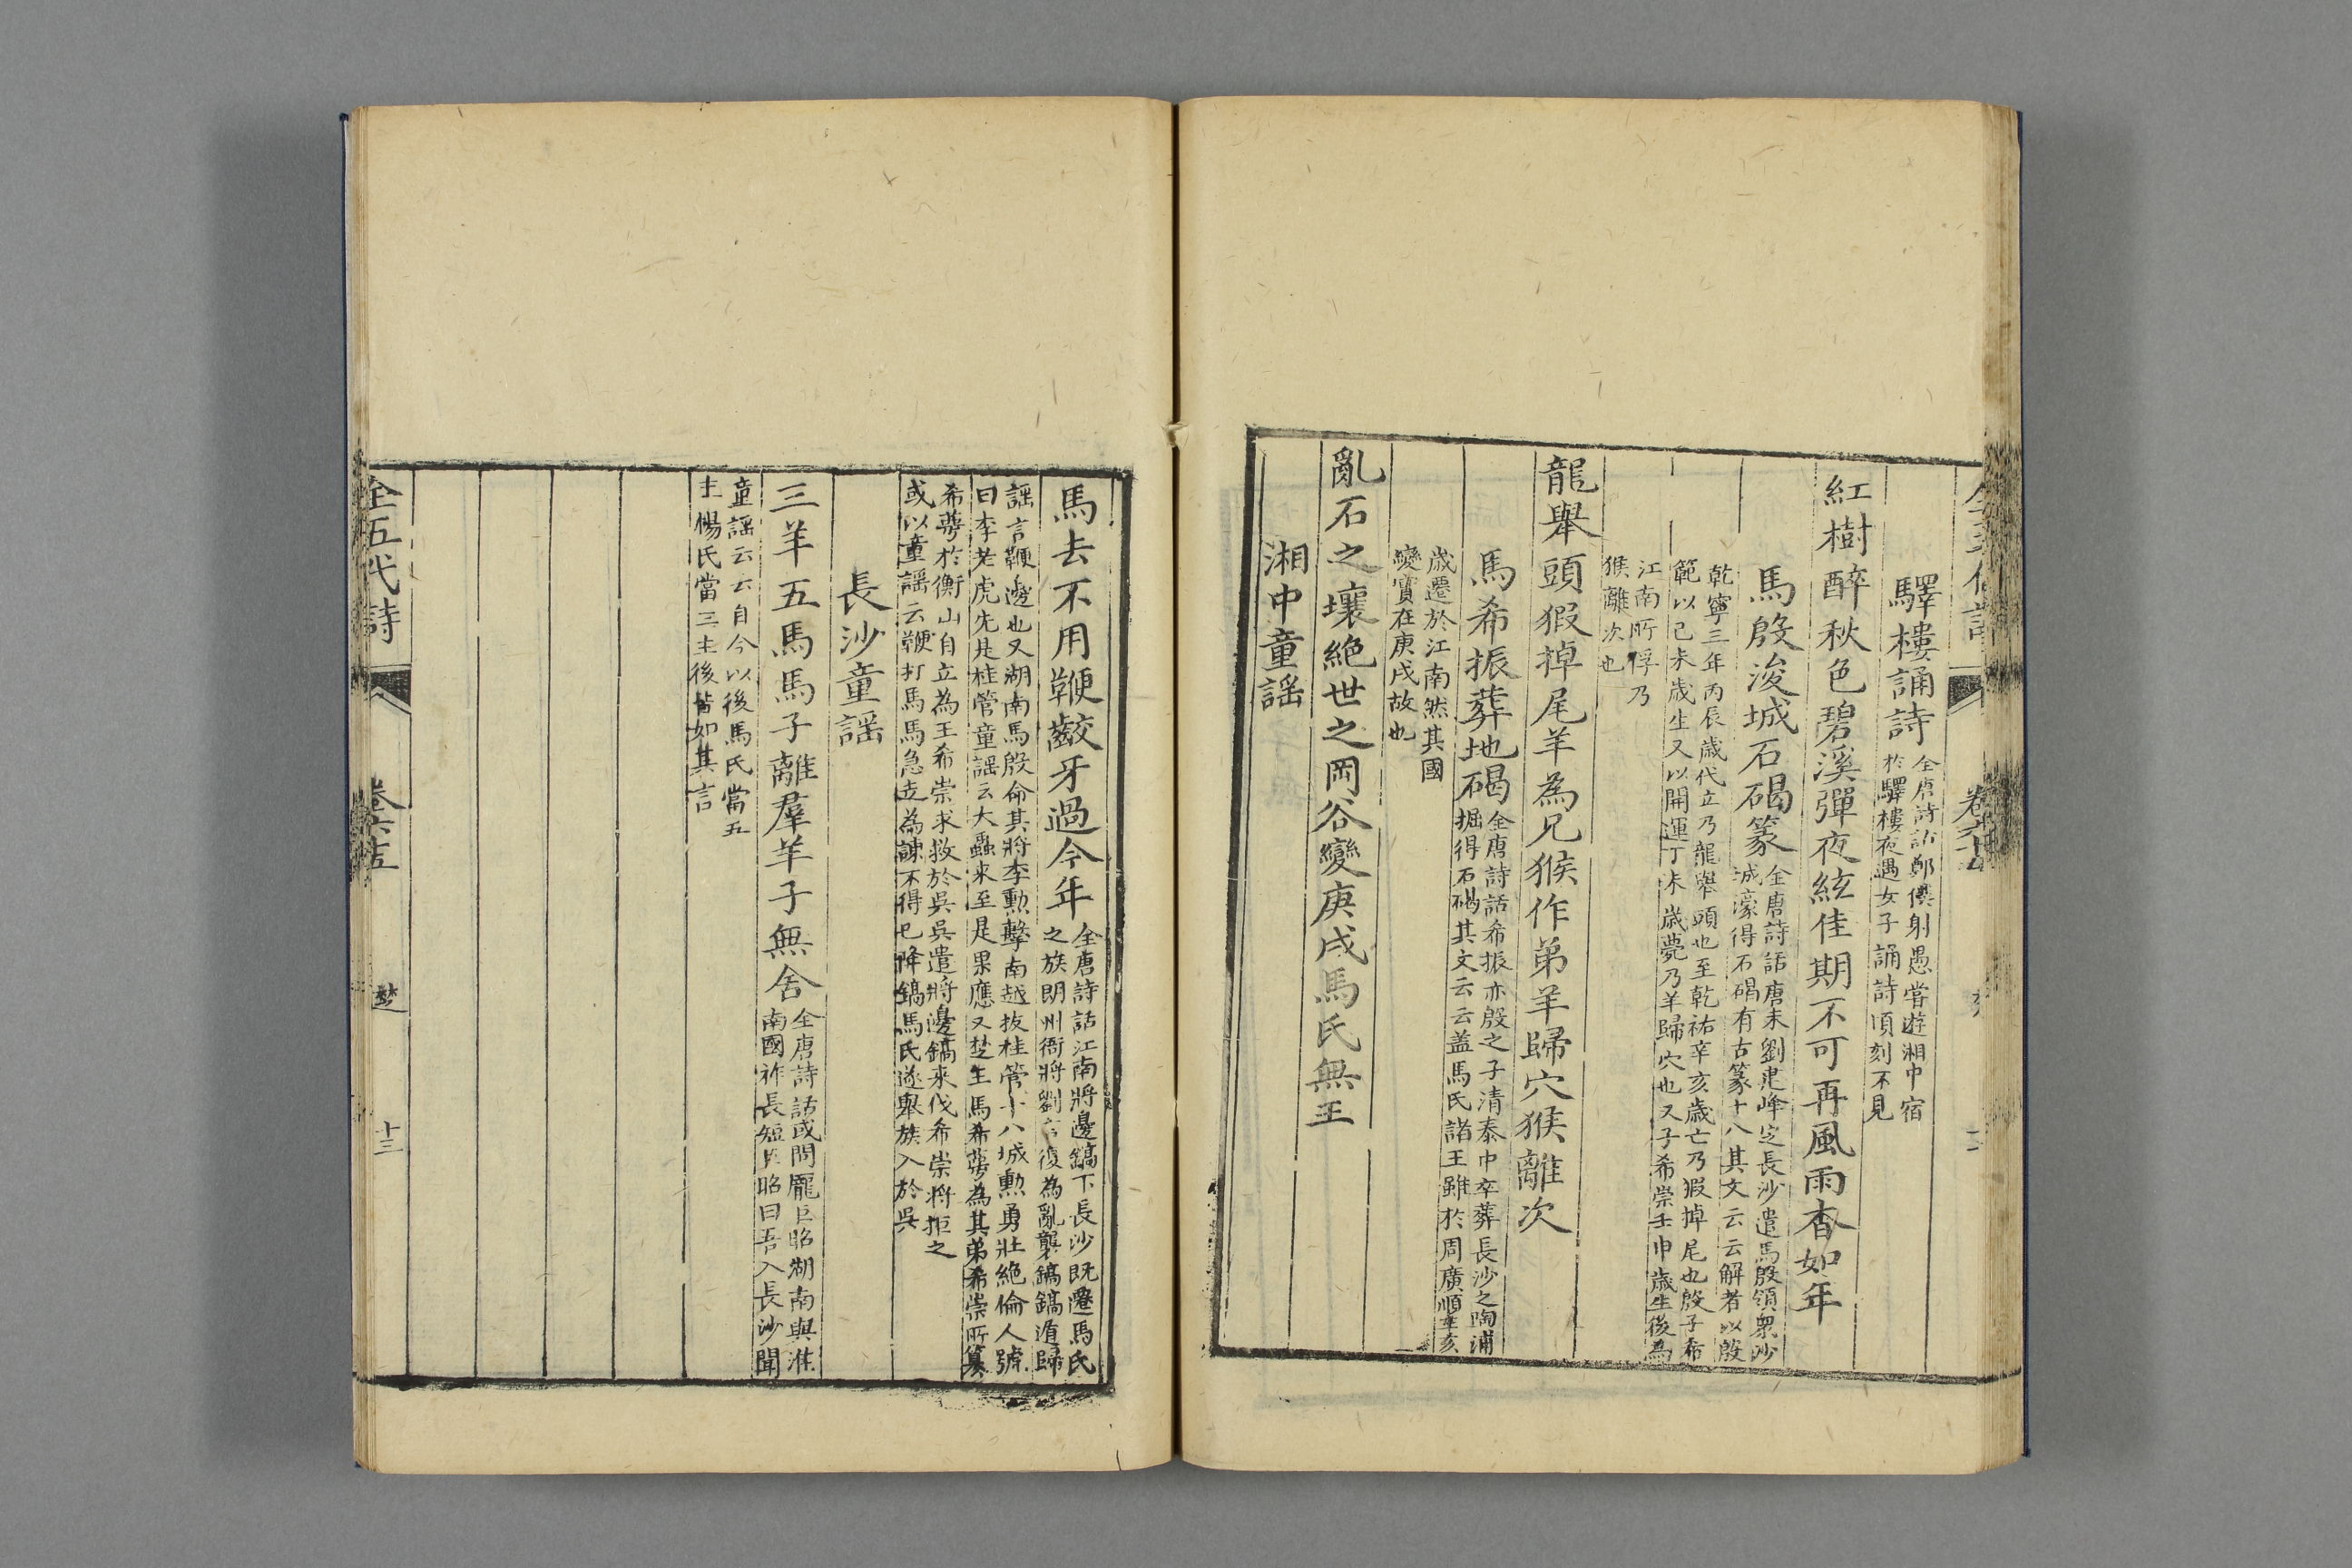 驛樓誦詩
全唐詩話鄭僕射愚嘗遊湘中宿
於驛樓夜遇女子誦詩頃刻不見
紅樹醉秋色碧溪彈夜絃佳期不可再風雨杳如年
馬殷浚城石碣篆
全唐詩話唐末劉建峰定長沙遣馬殷領衆沙
城濠得石碣有古篆十八其文云云解者以殷
乾寧三年丙辰歲代立乃龍舉頭也至乾祐辛亥歲亡乃猳掉尾也殷子希
範以己未歲生又以開運丁未歲薨乃羊歸穴也又子希崇壬申歲生後為
江南所俘乃
猴離次也
龍舉頭猳掉尾羊為兄猴作弟羊歸穴猴離次
馬希振葬地碣
全唐詩話希振亦殷之子清泰中卒葬長沙之陶浦
掘得石碣其文云云盖馬氏諸王雖於周廣順辛亥
歲遷於江南然其國
變實在庚戌故也
亂石之壤絕世之岡谷變庚戌馬氏無王
湘中童謠
馬去不用鞭齩牙過今年
全唐詩話江南將邊鎬下長沙既遷馬氏
之族朗州衙將劉言復為亂襲鎬鎬遁歸
謡言鞭邊也又湖南馬殷命其將李勳擊南越拔桂管十八城勲勇壯絕倫人號
曰李老虎先是桂管童謡云大蟲來至是果應又楚王馬希萼為其弟希崇所篡
希萼於衡山自立為王希崇求救於吳吳遣將邊鎬來伐希崇將拒之
或以童謡云鞭打馬馬急走為諫不得已降鎬馬氏遂舉族入於吳
長沙童謡
三羊五馬馬子離羣羊子無舍
全唐詩話或問龎巨昭湖南與淮
南國祚長短巨昭曰吾入長沙聞
童謡云云自今以後馬氏當五
主楊氏當三主後皆如其言
全五代詩
卷六十五
楚
十三